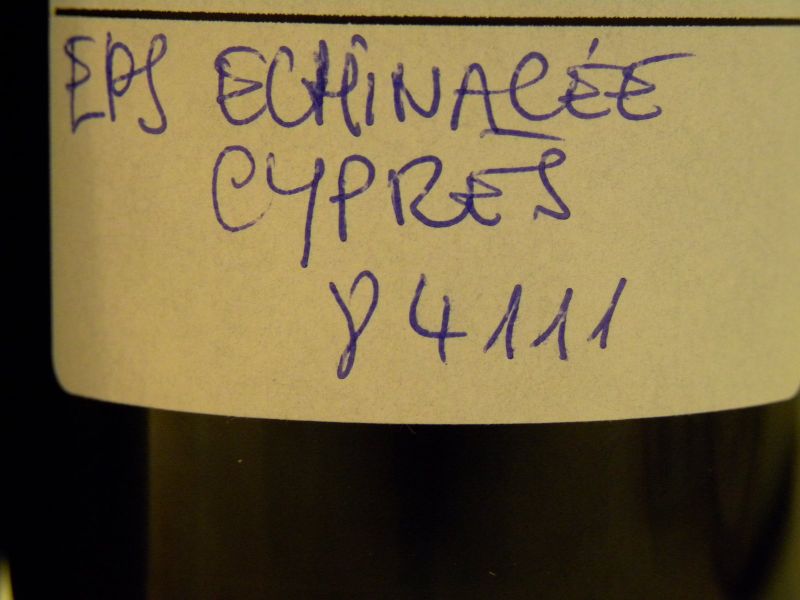 EPS ECHINACÉE
CYPRÈS
84111